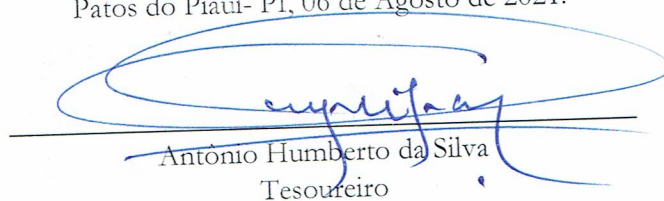 Patos do Piauí- PI, 06 de Agosto de 2021.
Antônio Humberto da Silva
Tesoureiro